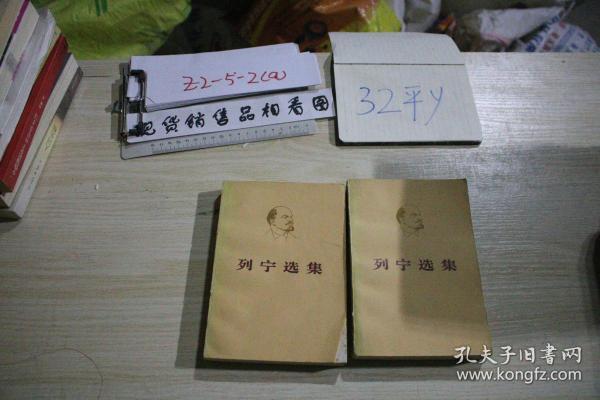 Z2-5-2(a)
现货销售品相看图
32平y
列宁选集
列宁选集
孔夫子旧书网
www.kongfz.com